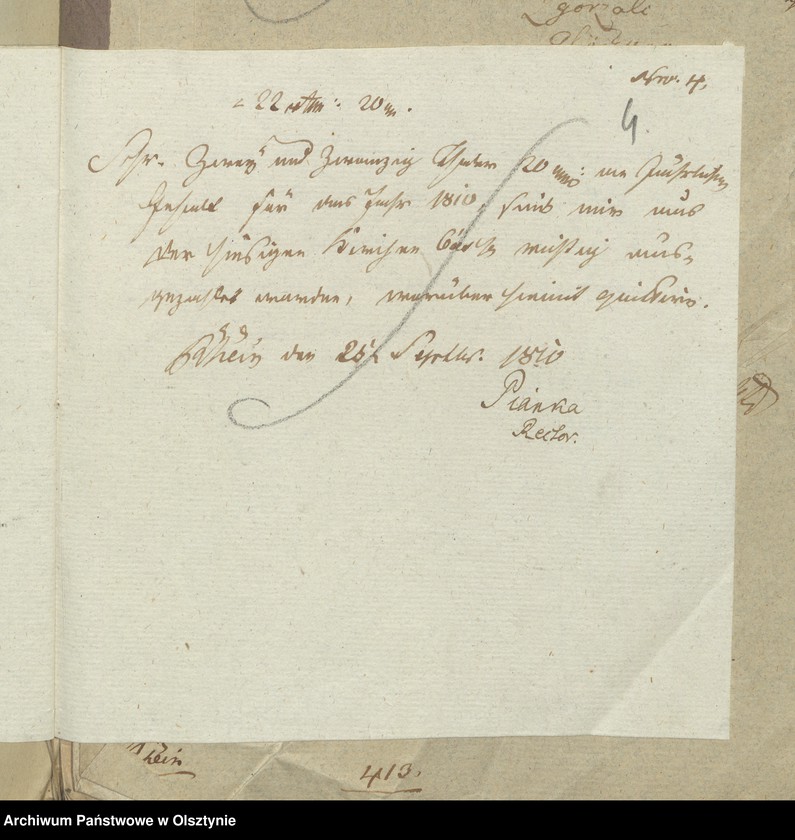 zgorzale
Nro. 4.
22 rthlr: 20
4.
Zwey und Zwanzig Thaler 20 an Jährlichen
Gehalt für das Jahr 1810, sind mir aus
der hiesigen Kirchen Casse richtig aus-
gezahlet worden, worüber hiemit quittire.
Rhein den 25t Septbr. 1810
Pianka
Rector.
Rhein
413.
Archiwum Państwowe w Olsztynie